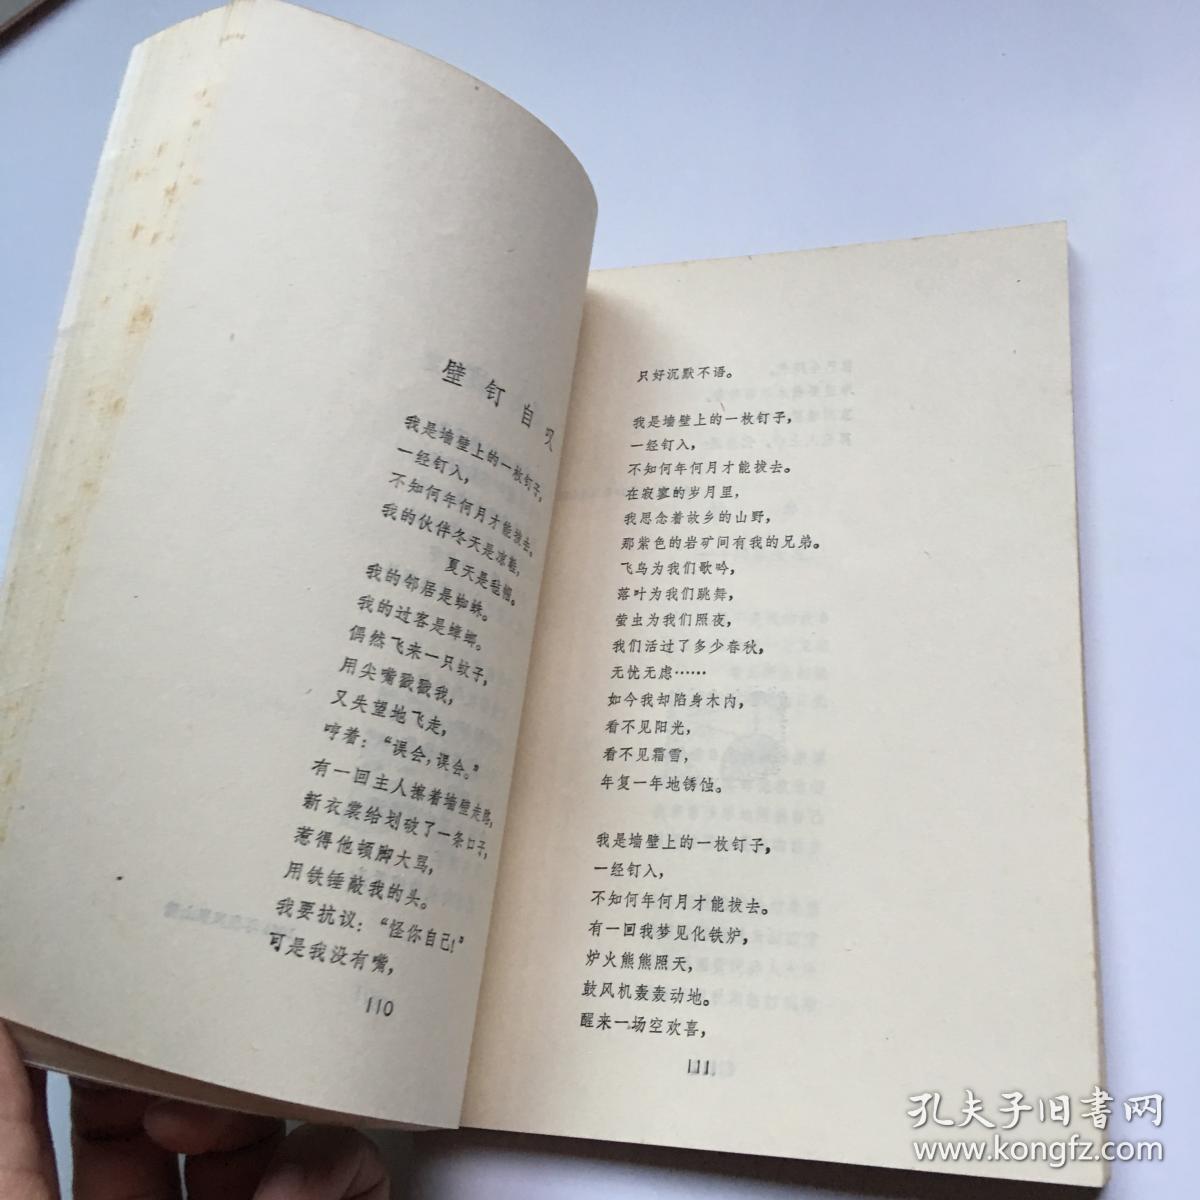 壁钉自叹
我是墙壁上的一枚钉子，
一经钉入，
不知何年何月才能拔去。
我的伙伴冬天是凉鞋，
夏天是毡帽。
我的邻居是蜘蛛。
我的过客是蟑螂。
偶然飞来一只蚊子，
用尖嘴戳戳我，
又失望地飞走，
哼着：“误会，误会。”
有一回主人擦着墙壁走路，
新衣裳给划破了一条口子，
惹得他顿脚大骂，
用铁锤敲我的头。
我要抗议：“怪你自己！”
可是我没有嘴，
110
只好沉默不语。
我是墙壁上的一枚钉子，
一经钉入，
不知何年何月才能拔去。
在寂寞的岁月里，
我思念着故乡的山野，
那紫色的岩矿间有我的兄弟。
飞鸟为我们歌吟，
落叶为我们跳舞，
萤虫为我们照夜，
我们活过了多少春秋，
无忧无虑……
如今我却陷身木内，
看不见阳光，
看不见霜雪，
年复一年地锈蚀。
我是墙壁上的一枚钉子，
一经钉入，
不知何年何月才能拔去。
有一回我梦见化铁炉，
炉火熊熊照天，
鼓风机轰轰动地。
醒来一场空欢喜，
111
孔夫子旧书网
www.kongfz.com